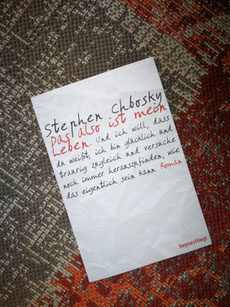 Stephen Chbosky
Das also ist mein
Leben. Und ich will, dass
du weißt, ich bin glücklich und
traurig zugleich und versuche
noch immer herauszufinden, wie
das eigentlich sein kann Roman
heyne›fliegt